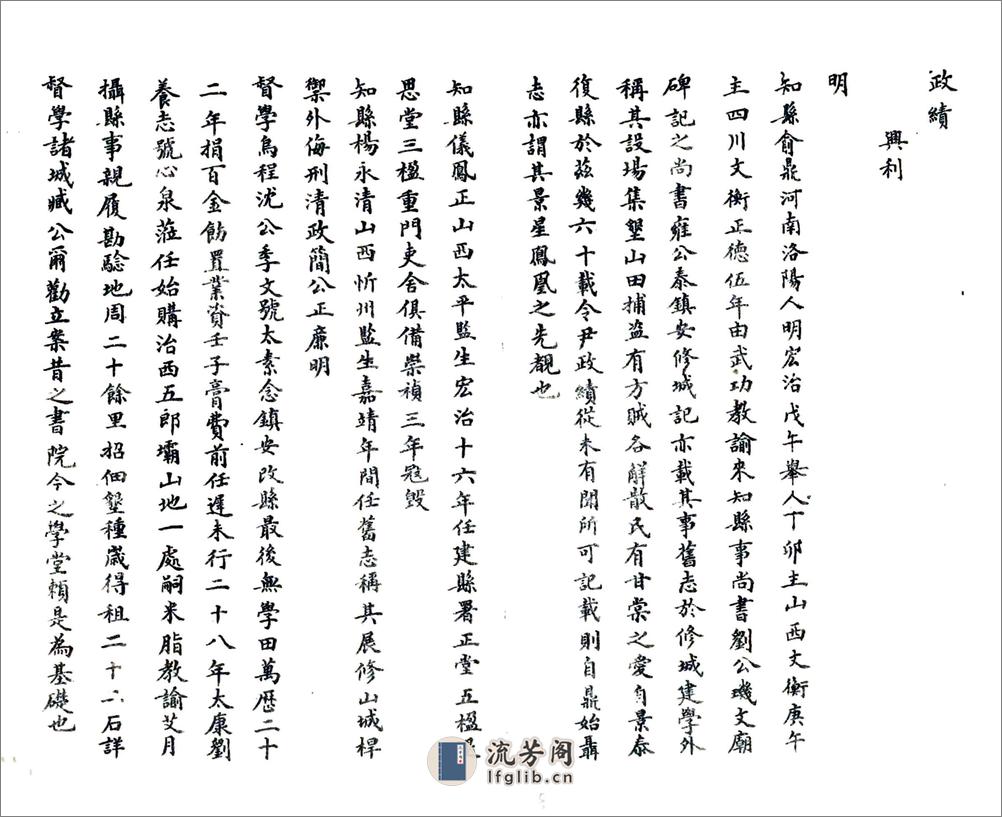 政績
興利
明
知縣俞鼎河南洛陽人明宏治戊午舉人丁卯主山西文衡庚午
主四川文衡正德伍年由武功教諭來知縣事尚書劉公璣文廟
碑記之尚書雍公泰鎮安修城記亦載其事舊志於修城建學外
稱其設場集墾山田捕盜有方賊各解散民有甘棠之愛自景泰
復縣於茲幾六十載令尹政績從未有聞所可記載則自鼎始聶
志亦謂其景星鳳凰之先覩也
知縣儀鳳正山西太平監生宏治十六年任建縣署正堂五楹
思堂三楹重門吏舍俱備崇禎三年冦毀
知縣楊永清山西忻州監生嘉靖年間任舊志稱其展修山城桿
禦外侮刑清政簡公正廉明
督學烏程沈公季文號太素念鎮安改縣最後無學田萬歷二十
二年捐百金飭置業資壬子膏費前任遲未行二十八年太康劉
養志號心泉蒞任始購治西五郎壩山地一處嗣米脂教諭艾月
攝縣事親履勘驗地周二十餘里招佃墾種歲得租二十石詳
督學諸城臧公爾勸立案昔之書院今之學堂賴是為基礎也
流芳阁
lfglib.cn